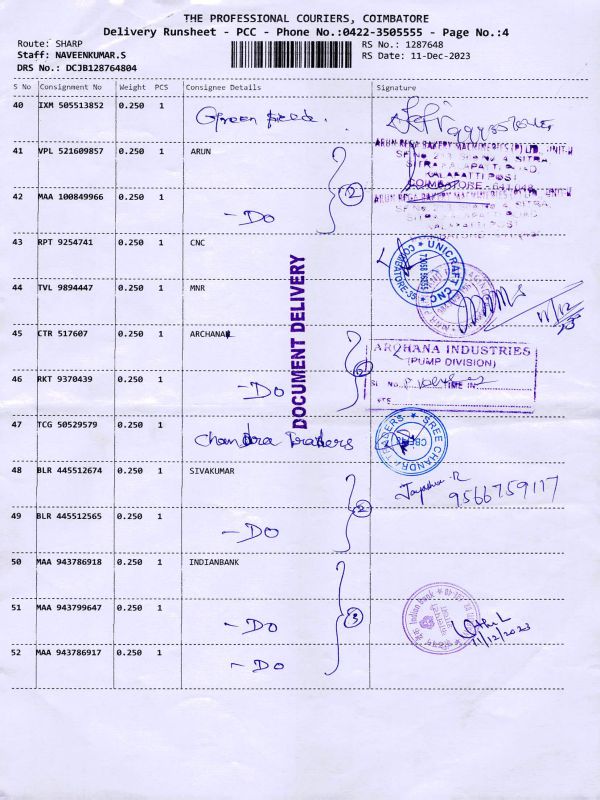 THE PROFESSIONAL COURIERS, COIMBATORE
Delivery Runsheet - PCC - Phone No.:0422-3505555 - Page No.:4
Route: SHARP
RS No.: 1287648
Staff: NAVEENKUMAR.S
RS Date: 11-Dec-2023
DRS No.: DCJB128764804
S No Consignment No Weight PCS Consignee Details Signature
40 IXM 505513852 0.250 1 Green seeds.
41 VPL 521609857 0.250 1 ARUN
ARUN REGA BAKERY MACHINERIES (P) LTD., UNIT-II
KALAPATTI POST
COIMBATORE - 641 048
42 MAA 100849966 0.250 1 - Do 2
43 RPT 9254741 0.250 1 CNC
UNICRAFT CNC ★ COIMBATORE-35
44 TVL 9894447 0.250 1 MNR
11/12/23
DOCUMENT DELIVERY
45 CTR 517607 0.250 1 ARCHANA
ARCHANA INDUSTRIES
(PUMP DIVISION)
46 RKT 9370439 0.250 1 - Do 2
SL NO. TIME IN
47 TCG 50529579 0.250 1 Chandra Traders
SREE CHANDRA TRADERS ★ CBE
48 BLR 445512674 0.250 1 SIVAKUMAR
9566759117
49 BLR 445512565 0.250 1 - Do 2
50 MAA 943786918 0.250 1 INDIANBANK
51 MAA 943799647 0.250 1 - Do 3
Indian bank
11/12/2023
52 MAA 943786917 0.250 1 - Do